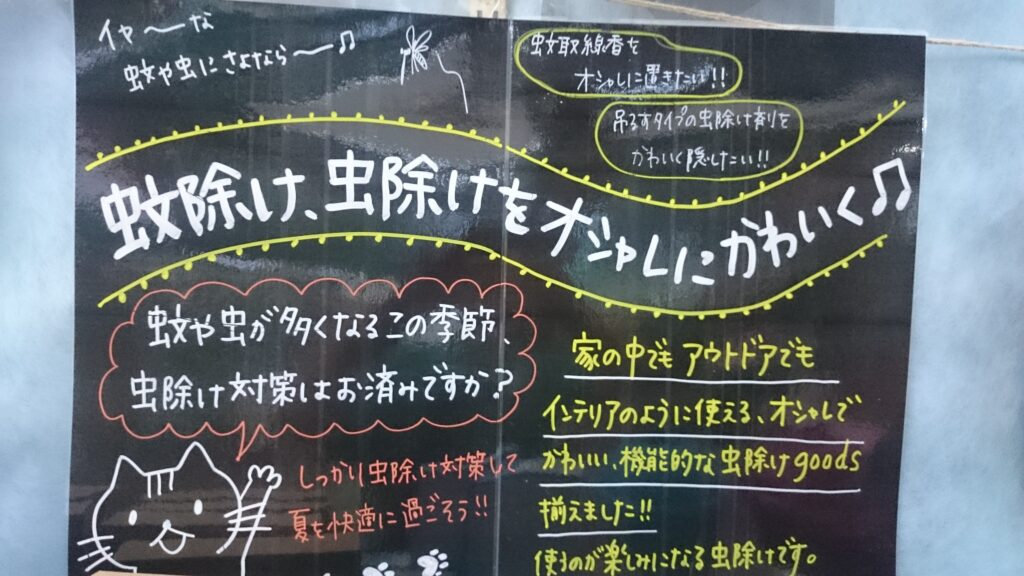 イヤ〜な
蚊や虫にさよなら〜♫
蚊取線香を
オシャレに置きたい!!
吊るすタイプの虫除け剤を
かわいく隠したい!!
蚊除け、虫除けをオシャレにかわいく♫
蚊や虫が多くなるこの季節、
虫除け対策はお済みですか?
しっかり虫除け対策して
夏を快適に過ごそう!!
家の中でもアウトドアでも
インテリアのように使える、オシャレで
かわいい、機能的な虫除けgoods
揃えました!!
使うのが楽しみになる虫除けです。